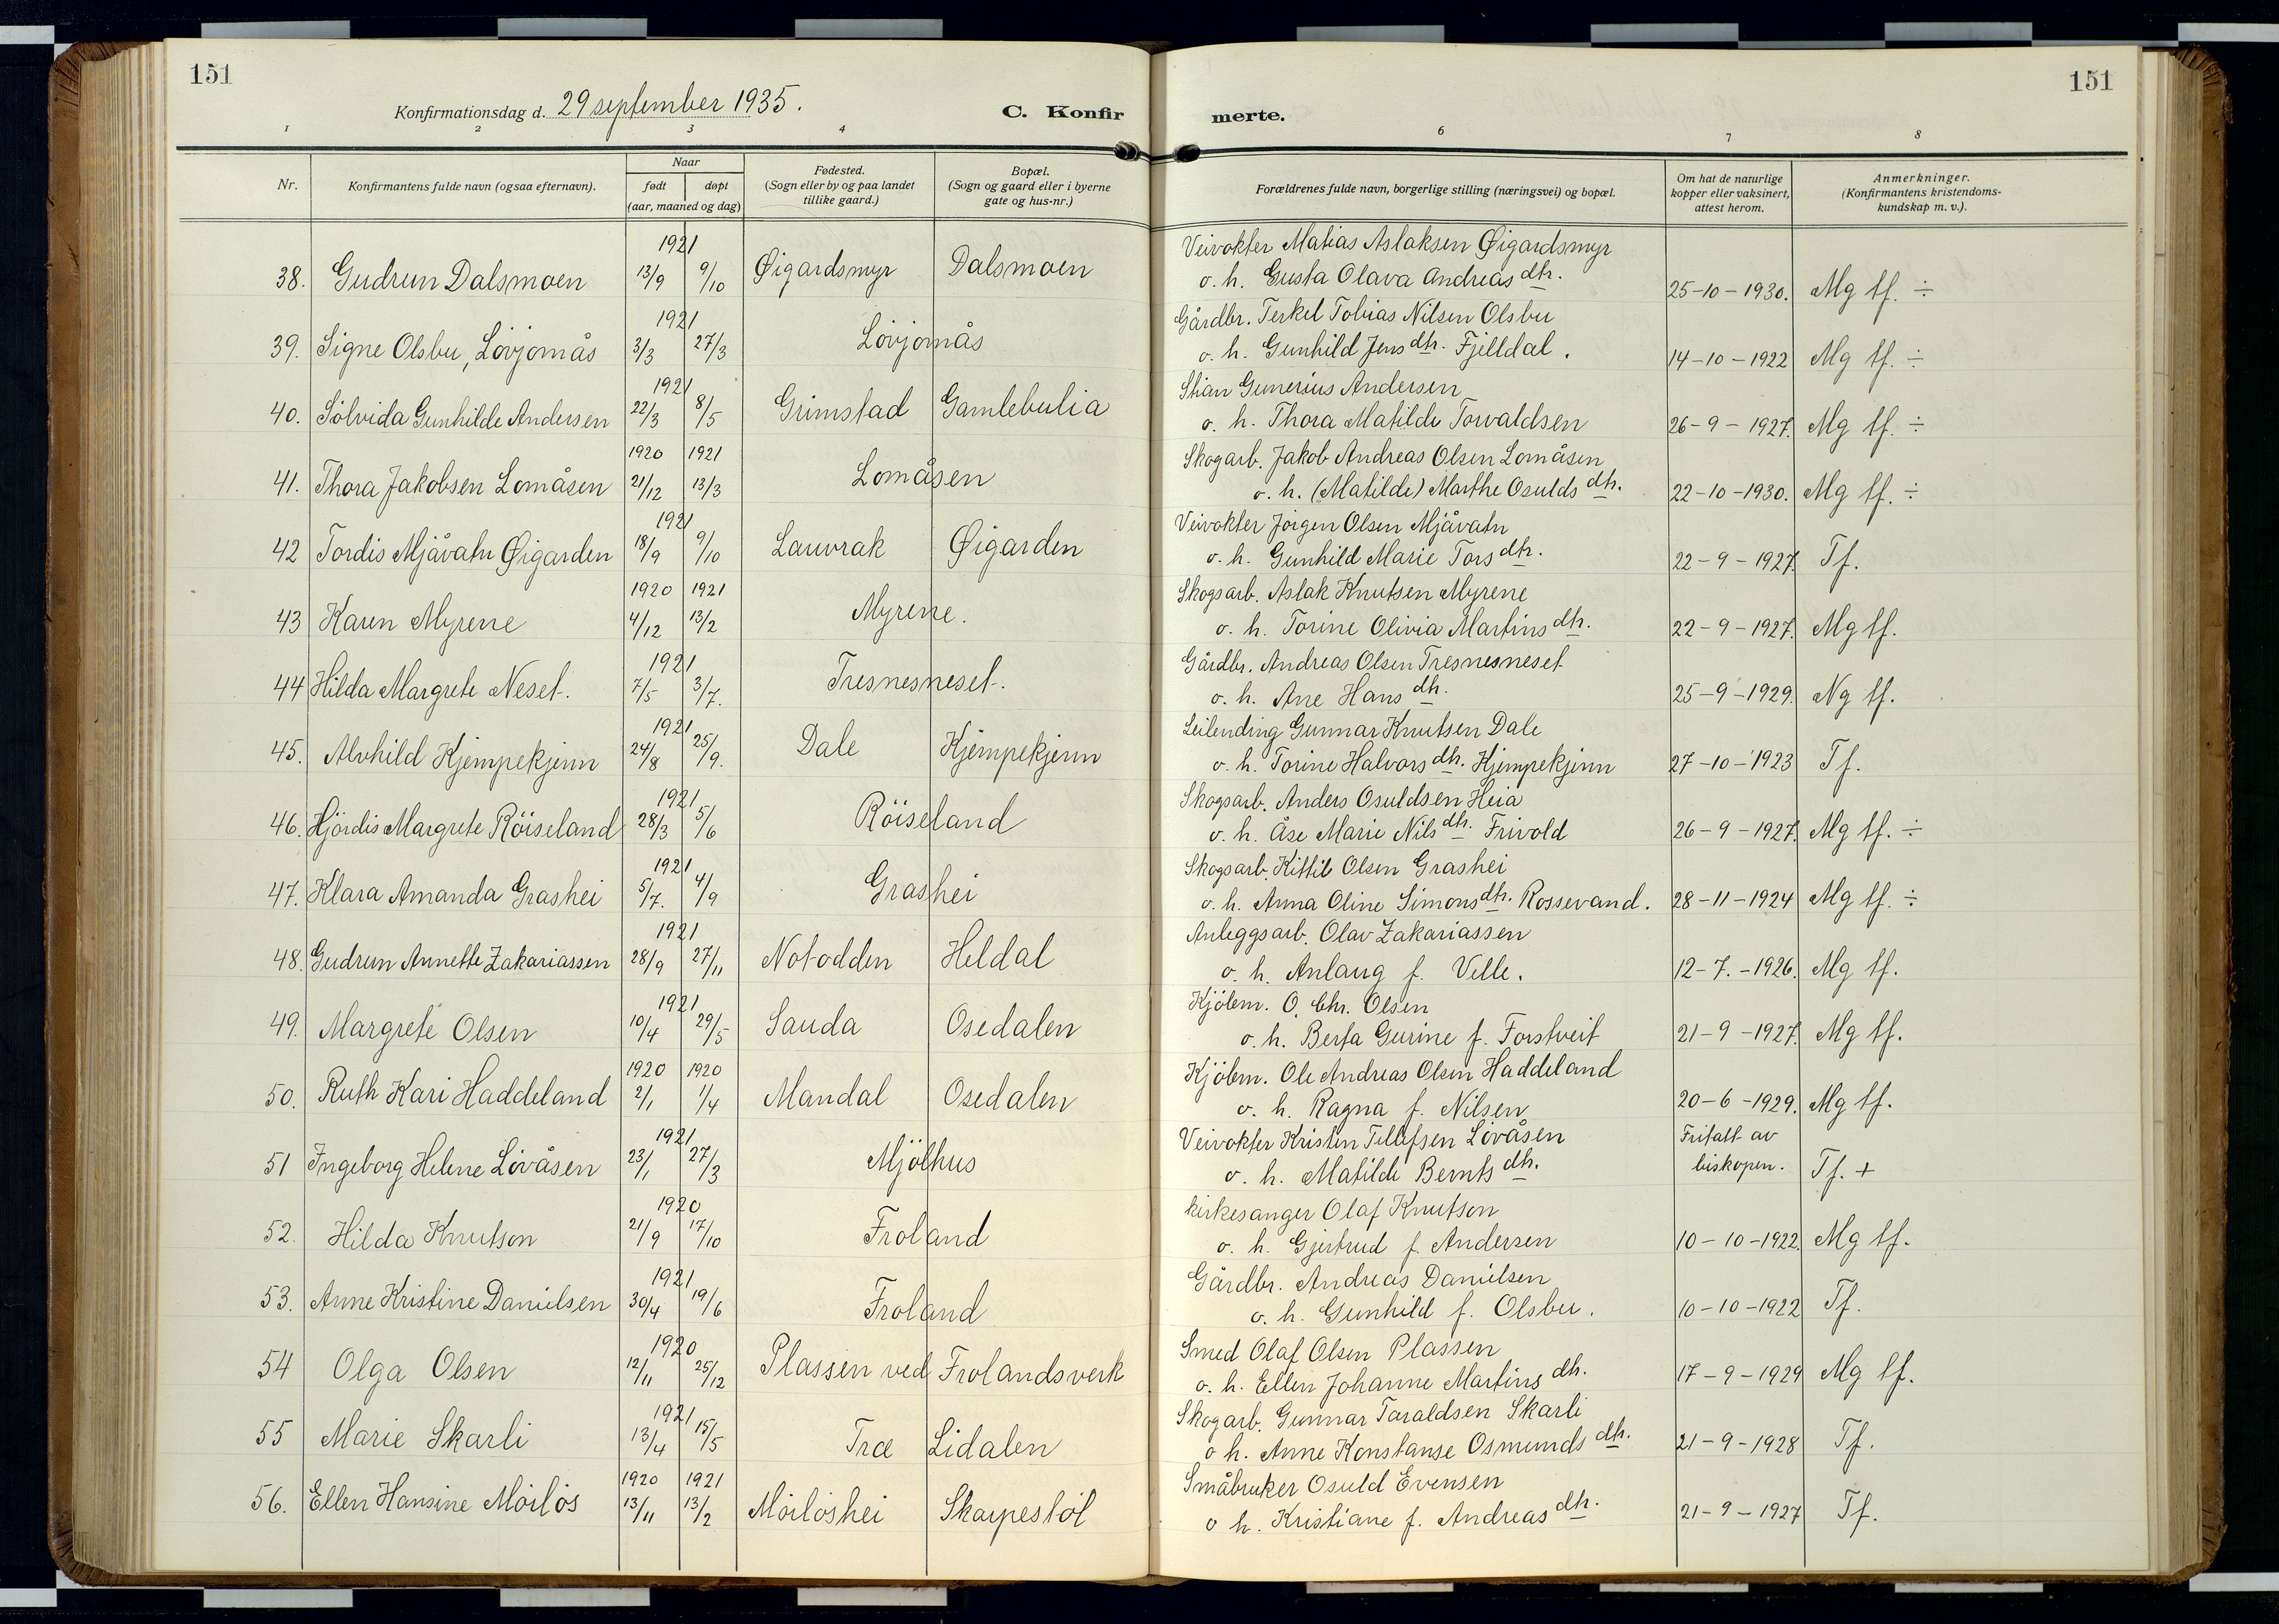 151
151
Konfirmationsdag d. 29 september 1935.
C. Konfirmerte.
1 2 3 4 6 7 8
Nr.
Konfirmantens fulde navn (ogsaa efternavn).
Naar
født
døpt
(aar, maaned og dag)
Fødested.
(Sogn eller by og paa landet
tillike gaard.)
Bopæl.
(Sogn og gaard eller i byerne
gate og hus-nr.)
Forældrenes fulde navn, borgerlige stilling (næringsvei) og bopæl.
Om hat de naturlige
kopper eller vaksinert,
attest herom.
Anmerkninger.
(Konfirmantens kristendoms-
kundskap m. v.).
1921 Veivokter Matias Aslaksen Øigardsmyr
38. Gudrun Dalsmoen 13/9 9/10 Øigardsmyr Dalsmoen o. h. Gusta Olava Andreas dtr. 25-10-1930. Mg tf. ÷
1921 Gårdbr. Terkel Tobias Nilsen Olsbu
39. Signe Olsbu, Lövjomås 3/3 27/3 Lövjomås o. h. Gunhild Jens dtr. Fjelldal. 14-10-1922 Mg tf. ÷
1921 Stian Gunerius Andersen
40. Sólvida Gunhilde Andersen 22/3 8/5 Grimstad Gamlebulia o. h. Thora Matilde Torvaldsen 26-9-1927. Mg tf. ÷
1920 1921 Skogarb. Jakob Andreas Olsen Lomåsen
41. Thora Jakobsen Lomåsen 21/12 13/3 Lomåsen o. h. (Matilde) Marthe Osulds dtr. 22-10-1930. Mg tf. ÷
1921 Veivokter Jörgen Olsen Mjåvatn
42 Tordis Mjåvatn Øigarden 18/9 9/10 Lauvrak Øigarden o. h. Gunhild Marie Tors dtr. 22-9-1927. Tf.
1920 1921 Skogsarb. Aslak Knutsen Myrene
43 Karen Myrene 4/12 13/2 Myrene. o. h. Torine Olivia Martins dtr. 22-9-1927. Mg tf.
1921 Gårdbr. Andreas Olsen Tresnesneset
44 Hilda Margrete Neset. 7/5 3/7. Tresnesneset. o. h. Ane Hans dtr. 25-9-1929. Ng tf.
1921 Leilending Gunnar Knutsen Dale
45. Alvhild Kjempekjenn 24/8 25/9. Dale Kjempekjenn o. h. Torine Halvors dtr. Kjempekjenn 27-10-1923 Tf.
1921 Skogsarb. Anders Osuldsen Heia
46. Hjördis Margrete Röiseland 28/3 5/6 Röiseland o. h. Åse Marie Nils dtr. Frivold 26-9-1927. Mg tf. ÷
1921 Skogsarb. Kittil Olsen Grashei
47. Klara Amanda Grashei 5/7. 4/9 Grashei o. h. Anna Oline Simons dtr. Rossevand. 28-11-1924 Mg tf. ÷
1921 Anleggsarb. Olav Zakariassen
48. Gudrun Annette Zakariassen 28/9 27/11 Notodden Heldal o. h. Anlaug f. Velle. 12-7.-1926. Mg tf.
1921 Kjöbm. O. Chr. Olsen
49. Margrete Olsen 10/4 29/5 Sauda Osedalen o. h. Berta Gurine f. Forstveit 21-9-1927. Mg tf.
1920 1920 Kjöbm. Ole Andreas Olsen Haddeland
50. Ruth Kari Haddeland 2/1 1/4 Mandal Osedalen o. h. Ragna f. Nilsen 20-6-1929. Mg tf.
1921 Veivokter Kristen Tellefsen Lövåsen Fritatt av
51 Ingeborg Helene Lövåsen 23/1 27/3 Mjölhus o. h. Matilde Bernts dtr. biskopen. Tf. +
1920 kirkesanger Olaf Knutson
52. Hilda Knutson 21/9 17/10 Froland o. h. Gjertrud f. Andersen 10-10-1922. Mg tf.
1921 Gårdbr. Andreas Danielsen
53. Anne Kristine Danielsen 30/4 19/6 Froland o. h. Gunhild f. Olsbu. 10-10-1922 Tf.
1920 Smed Olaf Olsen Plassen
54 Olga Olsen 12/11 25/12 Plassen ved Frolandsverk o. h. Ellen Johanne Martins dtr. 17-9-1929 Mg tf.
1921 Skogarb. Gunnar Taraldsen Skarli
55 Marie Skarli 13/4 15/5 Træ Lidalen o h. Anne Konstanse Osmunds dtr. 21-9-1928 Tf.
1920 1921 Småbruker Osuld Evensen
56. Ellen Hansine Möilös 13/11 13/2 Möilöshei Skarpestöl o h. Kristiane f. Andreas dtr. 21-9-1927 Tf.